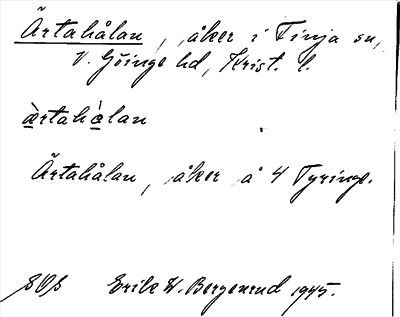 Ärtahålan, åker i Finja sn,
V. Göinge hd, Krist. l.
æ̀rtahàlan
Ärtahålan, åker å 4 Tyringe.
Erik W. Bergenrud 1945.